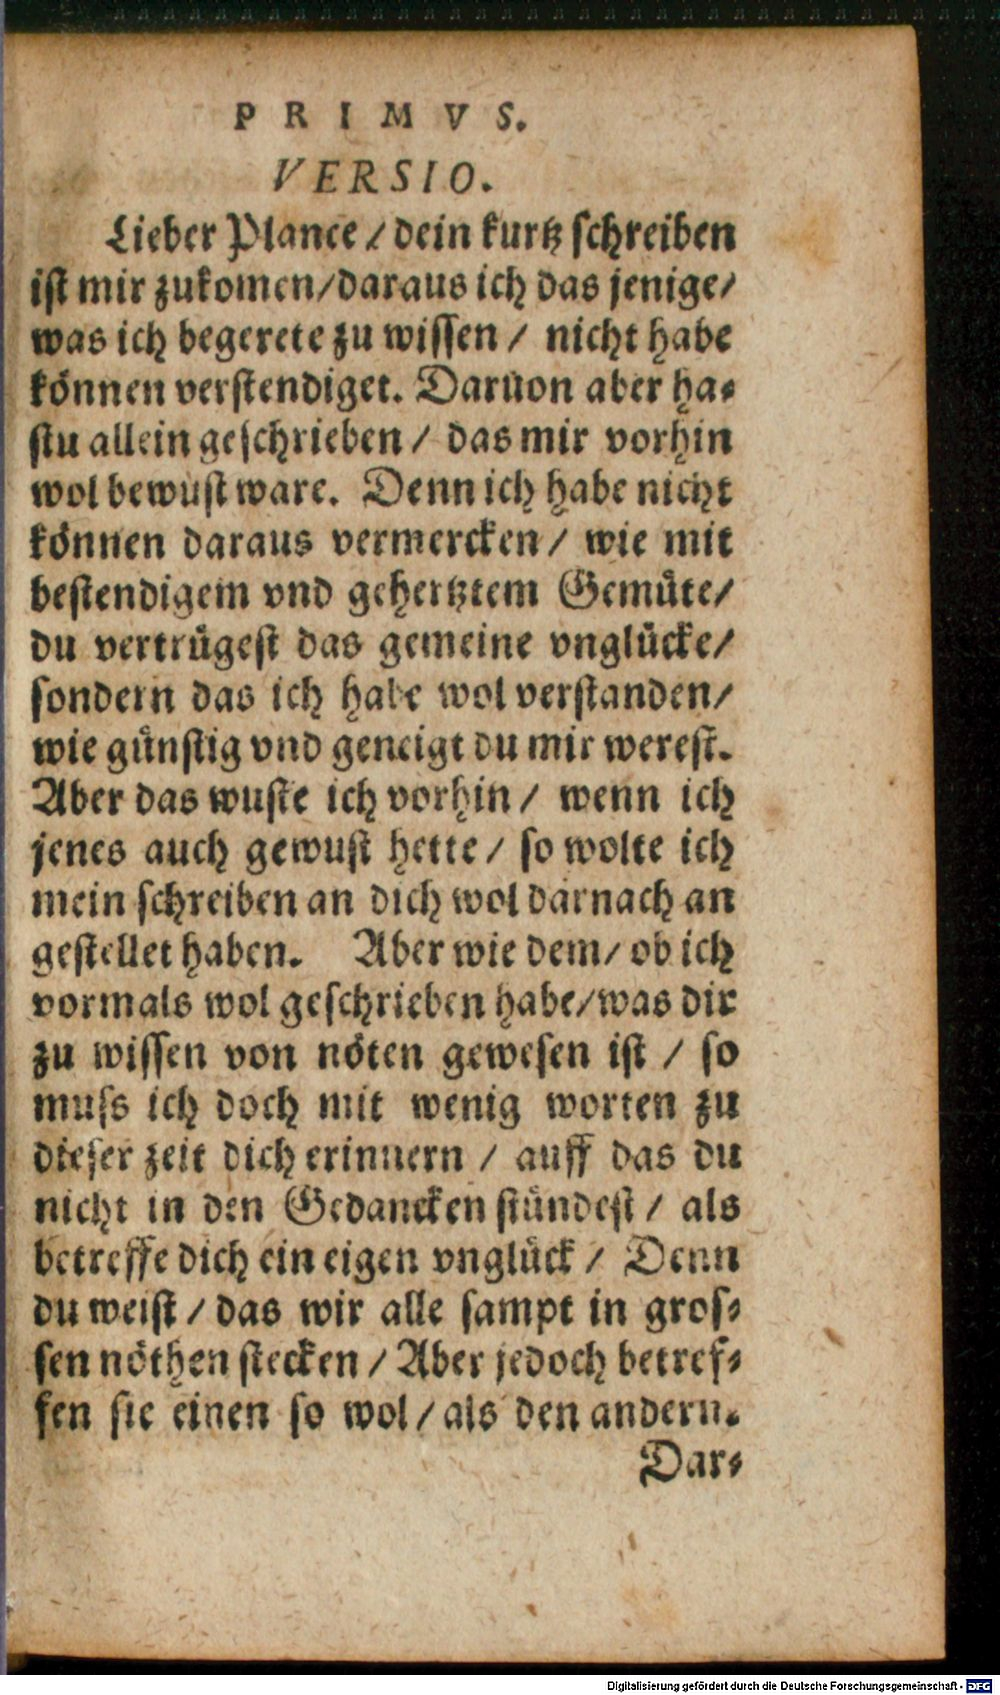 PRIMVS.
VERSIO.
Lieber Plance / dein kurtz schreiben
ist mir zukomen / daraus ich das jenige /
was ich begerete zu wissen / nicht habe
können verstendiget. Daruon aber ha-
stu allein geschrieben / das mir vorhin
wol bewust ware. Denn ich habe nicht
können daraus vermercken / wie mit
bestendigem vnd gehertztem Gemüte /
du vertrügest das gemeine vnglücke /
sondern das ich habe wol verstanden /
wie günstig vnd geneigt du mir werest.
Aber das wuste ich vorhin / wenn ich
jenes auch gewust hette / so wolte ich
mein schreiben an dich wol darnach an
gestellet haben. Aber wie dem / ob ich
vormals wol geschrieben habe / was dir
zu wissen von nöten gewesen ist / so
muss ich doch mit wenig worten zu
dieser zeit dich erinnern / auff das du
nicht in den Gedancken stündest / als
betreffe dich ein eigen vnglück / Denn
du weist / das wir alle sampt in gros-
sen nöthen stecken / Aber jedoch betref-
fen sie einen so wol / als den andern.
Dar-
Digitalisierung gefördert durch die Deutsche Forschungsgemeinschaft - DFG